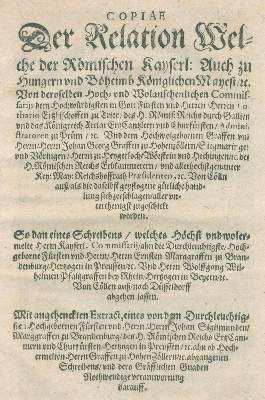 COPIAE
Der Relation Wel-
che der Römischen Kayserl: Auch zu
Hungern vnd Böheimb Königlichen Mayest. ꝛc.
Von deroselben Hoch- vnd Wolansehenlichen Commis-
sarijs dem Hochwürdigsten in Gott Fürsten vnd Herren Herren Lo-
thario Ertzbischoffen zu Trier/ des H. Römis: Reichs durch Gallien
vnd das Königreich Arelat Ertz Cantzlern vnd Churfürsten/ Admini-
stratorn zu Prüm/ ꝛc. Vnd dem Hochwolgebornen Graffen vnd
Herrn/ Herrn Johan Georg Graffen zu Hohenzollern/ Sigmaringen
vnd Vöringen/ Herrn zu Haygerloch/ Wöhrstein vnd Hechingen/ ꝛc. des
H. Römischen Reichs Erb Cammerern/ vnd allerhöchstgemelter
Key: May: Reichshoffrath Præsidenten/ ꝛc. Von Cölln
auß als die daselbst gepflogene gütliche hand-
lung sich zerschlagen/ aller vn-
terthenigst zugeschickt
worden.
So dan eines Schreibens/ welches Höchst vnd wolge-
melte Herrn Kayserl. Commissarij/ ahn die Durchleuchtigste: Hoch-
geborne Fürsten vnd Herrn/ Herrn Ernsten Marggraffen zu Bran-
denburg Hertzogen in Preussen/ ꝛc. Vnd Herrn Wolffgang Wil-
helmen Pfaltzgraffen bey Rhein/ Hertzogen in Beyern/ ꝛc.
Von Cöllen auß nach Düsseldorff
abgehen lassen.
Mit angehenckten Extract, eines von dem Durchleuchtig-
ste: Hochgebornen Fürsten vnd Herrn/ Herrn Johan Sigismunden/
Marggraffen zu Brandenburg/ des H. Römischen Reichs Ertz Cam-
merern vnd Churfürsten/ Hertzogen in Preussen/ ꝛc. ahn ob Hoch-
ermelten Herrn Graffen zu Hohen Zöllern/ ꝛc. abgangenen
Schreibens/ vnd dero Gräfflichen Gnaden
Nothwendige verantwortung
darauff.